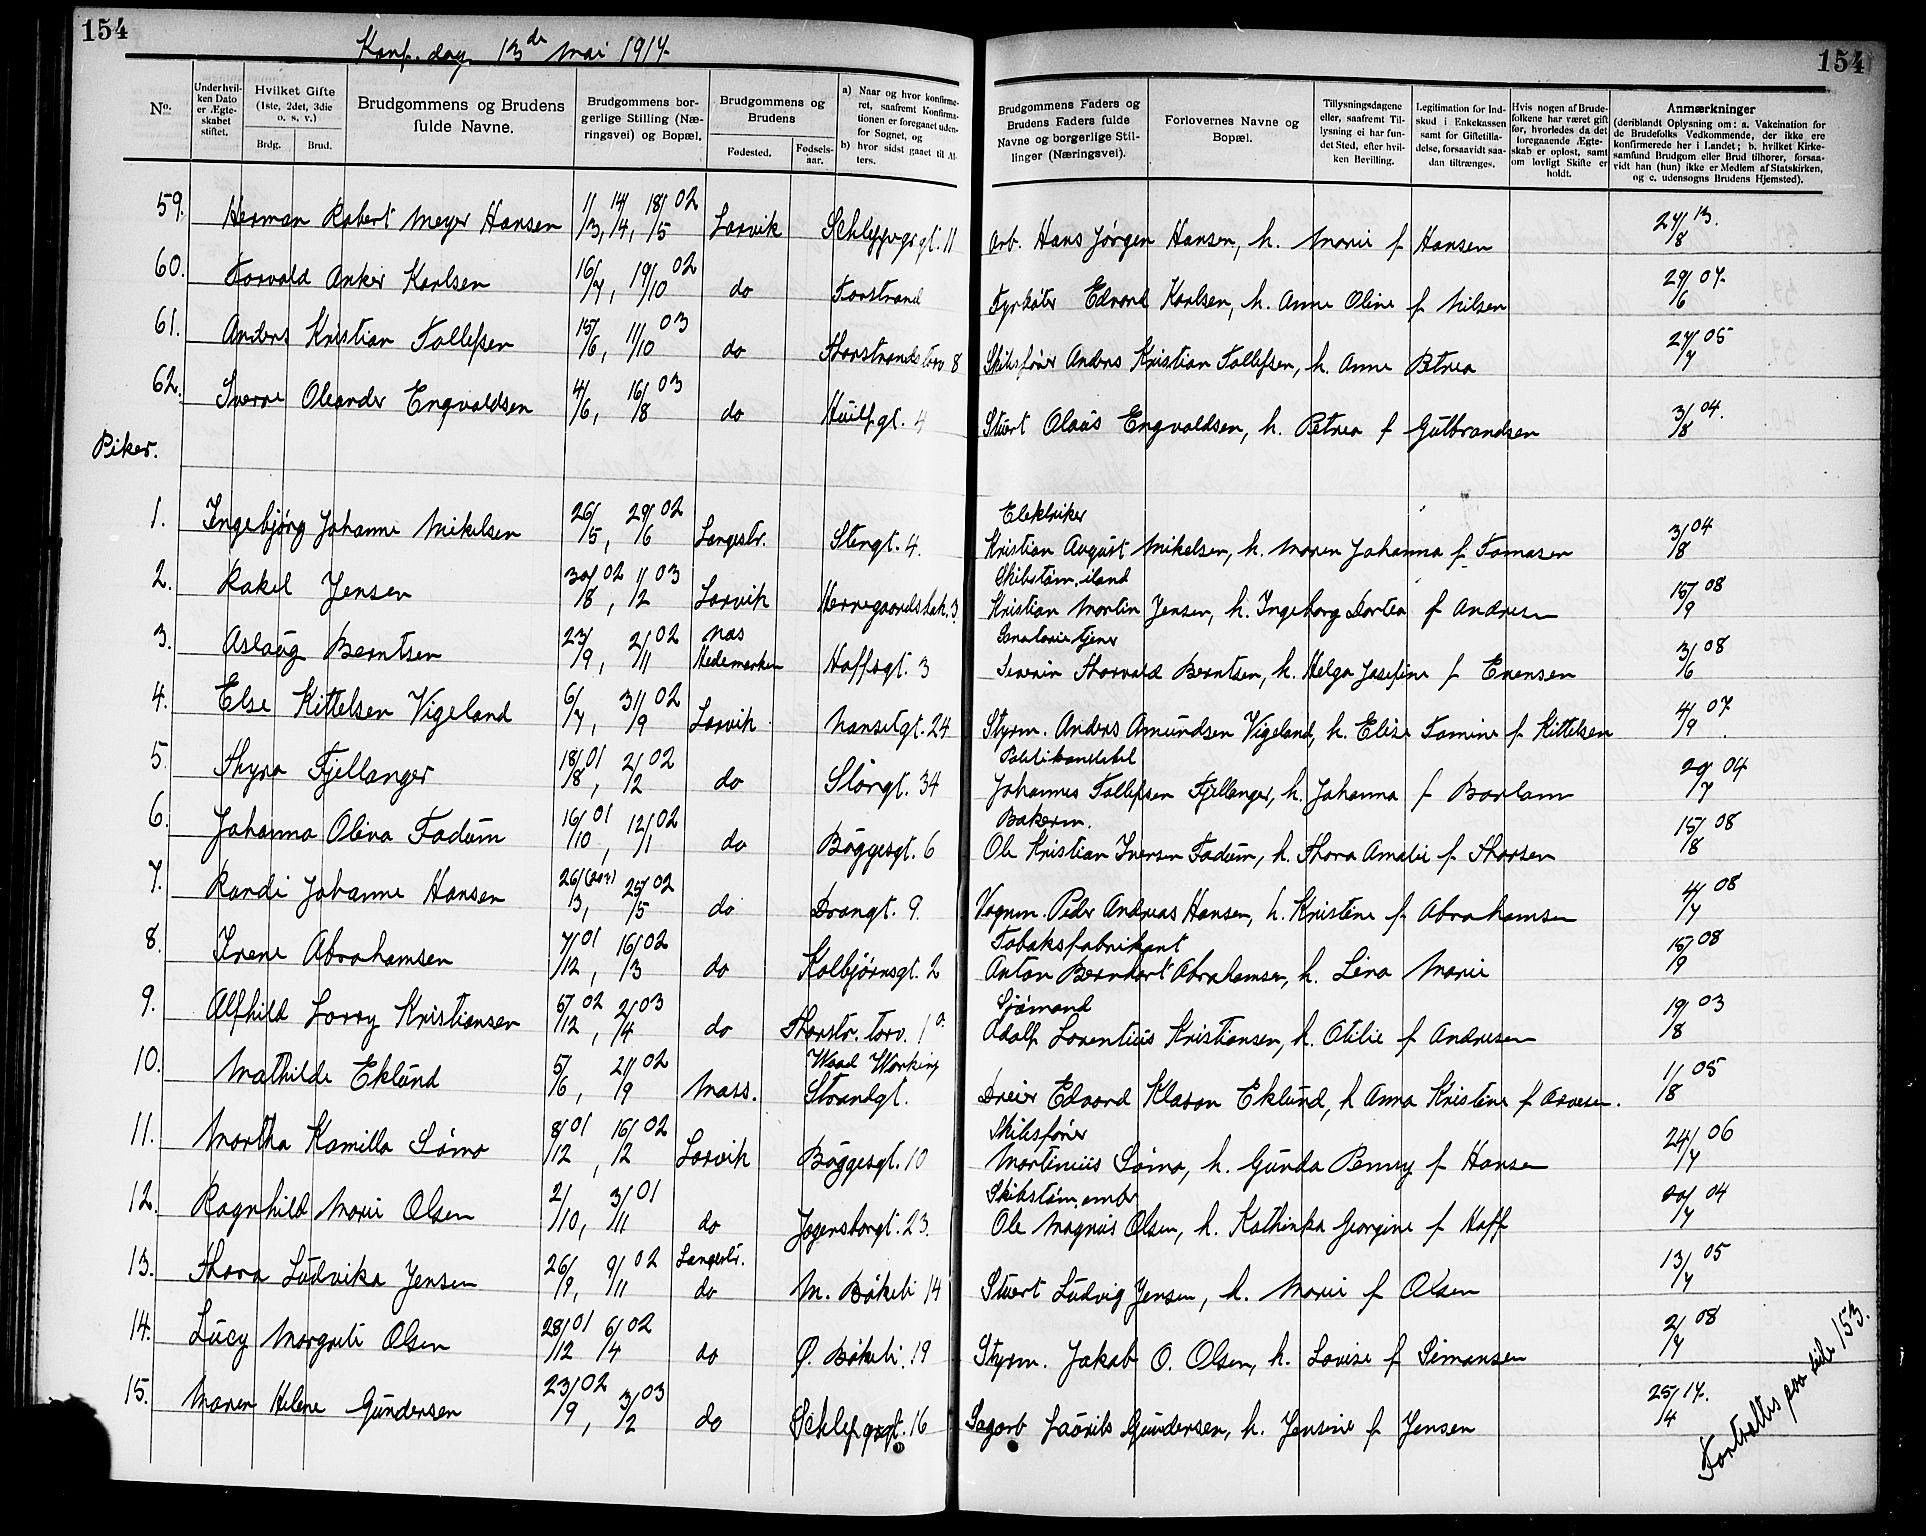 154
154
Konf. dag. 13de mai 1917.
No.
Under hvilken Dato er Ægteskabet stiftet.
Hvilket Gifte (1ste, 2det, 3die o. s. v.)
Brdg. Brud.
Brudgommens og Brudens fulde Navne.
Brudgommens borgerlige Stilling (Næringsvei) og Bopæl.
Brudgommens og Brudens
Fødested. Fødselsaar.
a) Naar og hvor konfirmeret, saafremt Konfirmationen er foregaaet udenfor Sognet, og
b) hvor sidst gaaet til Alters.
Brudgommens Faders og Brudens Faders fulde Navne og borgerlige Stillinger (Næringsvei).
Forlovernes Navne og Bopæl.
Tillysningsdagene eller, saafremt Tillysning ei har fundet Sted, efter hvilken Bevilling.
Legitimation for Indskud i Enkekassen samt for Giftetilladelse, forsaavidt saadan tiltrænges.
Hvis nogen af Brudefolkene har været gift før, hvorledes da det foregaaende Ægteskab er opløst, samt om lovligt Skifte er holdt.
Anmærkninger
(deriblandt Oplysning om: a. Vakcination for de Brudefolks Vedkommende, der ikke ere konfirmerede her i Landet; b. hvilket Kirkesamfund Brudgom eller Brud tilhører, forsaavidt han (hun) ikke er Medlem af Statskirken, og c. udensogns Brudens Hjemsted).
59. Herman Robert Meyer Hansen 1/3, 14/4, 18/5 02 Larvik Schleppegrgt. 11 Arb. Hans Jørgen Hansen, h. Marie f Hansen 24/8 13.
60. Torvald Anker Karlsen 16/7, 19/10 02 do Torstrand Fyrbøter Edvard Karlsen, h. Anne Oline f Nilsen 29/6 07.
61. Anders Kristian Tollefsen 15/6, 11/10 03 do Thorstrands torv 8 Skibsfører Anders Kristian Tollefsen, h. Anne Petrea 27/7 05
62. Sverre Oleander Engvaldsen 4/6, 16/8 03 do Huitf.gt. 4 Stuert Olaus Engvaldsen, h. Petrea f Gulbrandsen 3/8 04.
Piker.
1. Ingebjørg Johanne Mikelsen 26/5, 29/6 02 Langestr. Stengt. 4. Elektriker Kristian August Mikelsen, h. Maren Johanna f. Tomasen 3/8 04
2. Rakel Jensen 30/8 02, 1/2 03 Larvik Herregaardsbak. 3. Skibstøm. iland Kristian Martin Jensen, h. Ingeborg Dortea f Andresen 15/9 08
3. Aslaug Berntsen 23/9, 2/11 02 Nes Hedemarken Hoffsgt. 3 Sanatorietjener Severin Thorvald Berntsen, h. Helga Josefine f Evensen 3/6 08
4. Else Kittelsen Vigeland 6/7, 31/9 02 Larvik Nansetgt. 24 Styrm. Anders Amundsen Vigeland, h. Elise Tomine f Kittelsen 4/9 07.
5. Thyra Fjellanger 18/8 01, 2/2 02 do Storgt. 34 Johannes Tollefsen Fjellanger, h. Johanna f Barlam 29/7 04
6. Johanna Oliva Fadum 16/10 01, 12/1 02 do Bøggesgt. 6 Bakerm. Ole Kristian Iversen Fadum, h. Thora Amalie f. Thorsen 15/8 08
7. Randi Johanne Hansen 26/13, 25/5 02 do Drangt. 9. Vognm. Peder Andreas Hansen, h. Kristine f Abrahamsen 4/7 08
8. Irene Abrahamsen 7/12 01, 16/3 02 do Kolbjørnsgt. 2 Tobaksfabrikant Anton Bernhart Abrahamsen, h. Lina Marie 15/9 08
9. Alfhild Lovry Kristiansen 5/12 02, 2/4 03 do Thorstr. torv. 1a. Sjømand Adolf Lorentius Kristiansen, h. Otilie f Andresen 19/8 03
10. Mathilde Eklund 5/6, 21/9 02 Mass. Wood Working Strandgt. Dreier Edvard Klason Eklund, h Anna Kristine f Arvesen. 1/8 05
11. Martha Kamilla Sømo 8/12 01, 16/2 02 Larvik Bøggesgt. 10 Skibsfører Martinius Sømo, h. Gunda Penny f Hansen 24/7 06
12. Ragnhild Marie Olsen 2/10, 3/11 01 do Jegersborgt. 23. Skibstøm. Ole Magnus Olsen, h. Kathinka Georgine f Hoff 20/7 04
13. Thora Ludvika Jensen 26/9, 9/11 02 Langestr. do M. Bøkeli 14 Stuert Ludvig Jensen, h. Marie f Olsen 13/7 05
14. Lucy Margrete Olsen 28/12 01 6/4 02 do Ø. Bøkeli. 19 Styrm. Jakob O. Olsen, h. Lovise f Simonsen 2/7 08
15. Maren Helene Gundersen 23/9 02, 3/2 03 do Schlepgrgt. 16 Sagarb Laurits Gundersen, h. Jensine f Jensen 25/4 17.
Fortsættes paa side 153.